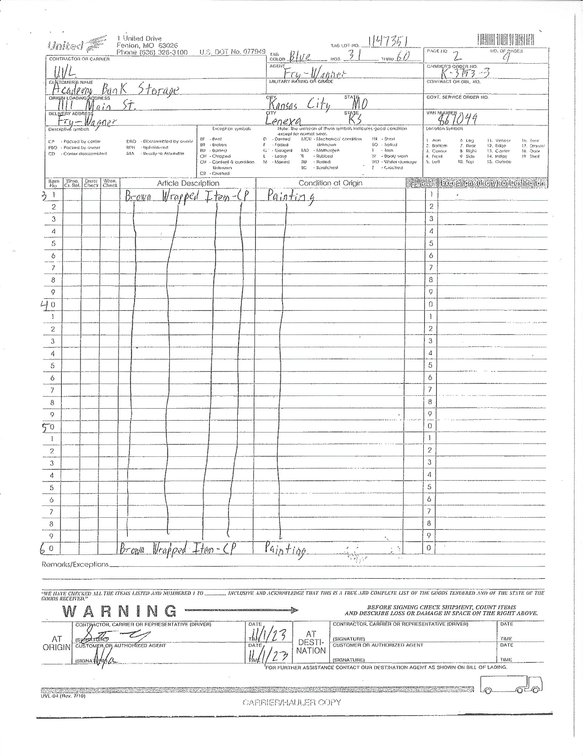 United
1 United Drive
Fenton, MO 63026
Phone (636) 326-3100
U.S. DOT No. 077949
TAG LOT NO. 1147351
TAG COLOR Blue NOS. 31 THRU 60
PAGE NO. 2 NO. OF PAGES 9
CONTRACTOR OR CARRIER
UVL
AGENT
Fry-Wagner
CARRIER'S ORDER NO.
K-3793-3
CUSTOMER'S NAME
Academy Bank Storage
MILITARY RATING OR GRADE
CONTRACT OR GBL. NO.
ORIGIN LOADING ADDRESS
1111 Main St.
CITY
Kansas City
STATE
MO
GOVT. SERVICE ORDER NO.
DELIVERY ADDRESS
Fry-Wagner
CITY
Lenexa
STATE
KS
VAN NUMBER
Descriptive symbols
Exception symbols
Note: The omission of these symbols indicates good condition except for normal wear.
Location Symbols
CP - Packed by carrier
PBO - Packed by owner
CD - Carrier disassembled
DBO - Disassembled by owner
BE - Bent
BR - Broken
BU - Burned
CH - Chipped
CU - Contents & condition unknown
D - Dented
F - Faded
G - Gouged
L - Loose
M - Marred
MI - Mildew
MO - Motheaten
R - Rubbed
RU - Rusted
SC - Scratched
SH - Short
SO - Soiled
T - Torn
W - Badly worn
Z - Cracked
1. Arm
2. Bottom
3. Corner
4. Front
5. Left
6. Leg
7. Rear
8. Right
9. Side
10. Top
11. Veneer
12. Edge
13. Center
14. Inside
15. Outside
16. Seat
17. Drawer
18. Door
19. Shelf
Item No.
Article Description
Condition at Origin
3 1 Brown Wrapped Item-CP Painting 1
2 2
3 3
4 4
5 5
6 6
7 7
8 8
9 9
4 0 0
1 1
2 2
3 3
4 4
5 5
6 6
7 7
8 8
9 9
5 0 0
1 1
2 2
3 3
4 4
5 5
6 6
7 7
8 8
9 9
6 0 Brown Wrapped Item-CP Painting 0
Remarks/Exceptions
"WE HAVE CHECKED ALL THE ITEMS LISTED AND NUMBERED 1 TO ______ INCLUSIVE AND ACKNOWLEDGE THAT THIS IS A TRUE AND COMPLETE LIST OF THE GOODS TENDERED AND OF THE STATE OF THE GOODS RECEIVED."
WARNING
BEFORE SIGNING CHECK SHIPMENT, COUNT ITEMS
AND DESCRIBE LOSS OR DAMAGE IN SPACE ON THE RIGHT ABOVE.
AT ORIGIN
CONTRACTOR, CARRIER OR REPRESENTATIVE (DRIVER)
(SIGNATURE)
DATE
11/1/23
TIME
CUSTOMER OR AUTHORIZED AGENT
(SIGNATURE) N/a
DATE
11/1/23
AT DESTINATION
CONTRACTOR, CARRIER OR REPRESENTATIVE (DRIVER)
(SIGNATURE)
DATE
TIME
CUSTOMER OR AUTHORIZED AGENT
(SIGNATURE)
DATE
TIME
FOR FURTHER ASSISTANCE CONTACT OUR DESTINATION AGENT AS SHOWN ON BILL OF LADING.
UVL-04 (Rev. 7/10)
CARRIER/HAULER COPY